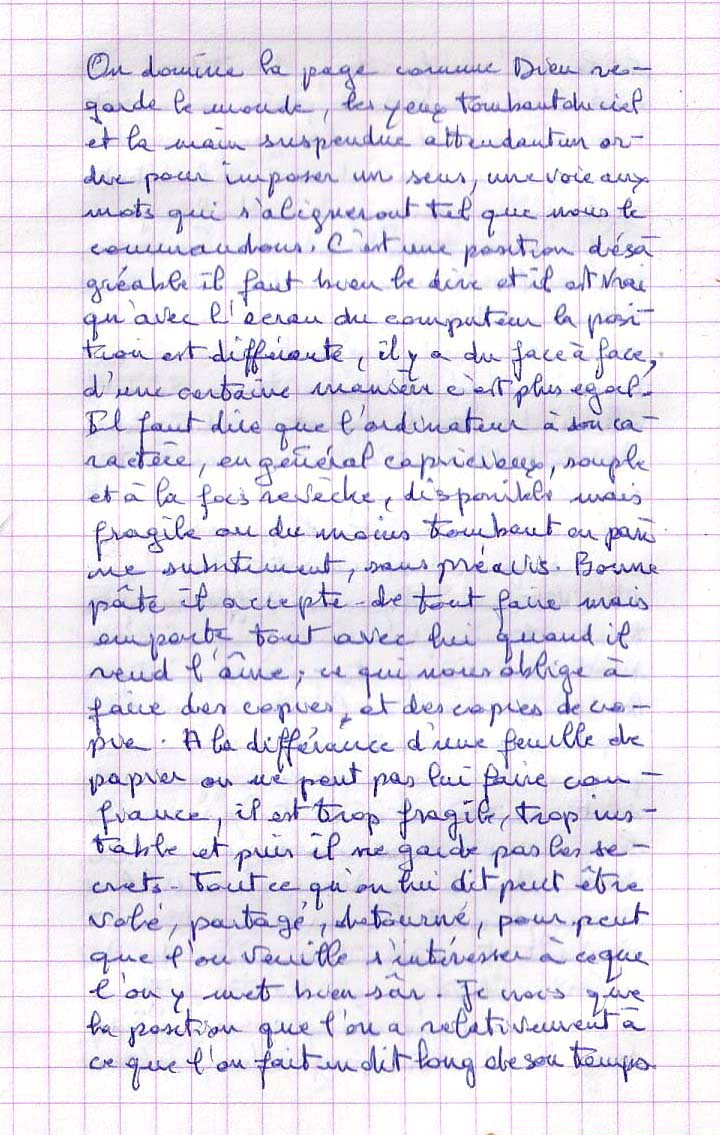 On domine la page comme Dieu re-
garde le monde, les yeux tombant du ciel
et la main suspendue attendant un or-
dre pour imposer un sens, une voie aux
mots qui s'aligneront tel que nous le
commandons. C'est une position désa
gréable il faut bien le dire et il est vrai
qu'avec l'écran du computeur la posi-
tion est différente, il y a du face à face,
d'une certaine manière c'est plus égal.
Il faut dire que l'ordinateur à son ca-
ractère, en général capricieux, souple
et à la fois revêche, disponible mais
fragile ou du moins tombant en pan
ne subitement, sans préavis. Bonne
pâte il accepte de tout faire mais
emporte tout avec lui quand il
rend l'âme; ce qui nous oblige à
faire des copies, et des copies de co-
pie. A la différence d'une feuille de
papier on ne peut pas lui faire con-
fiance, il est trop fragile, trop ins-
table et puis il ne garde pas les se-
crets. Tout ce qu'on lui dit peut être
volé, partagé, détourné, pour peut
que l'on veuille s'intéresser à ce que
l'on y met bien sûr. Je crois que
la position que l'on a relativement à
ce que l'on fait en dit long de son temps.